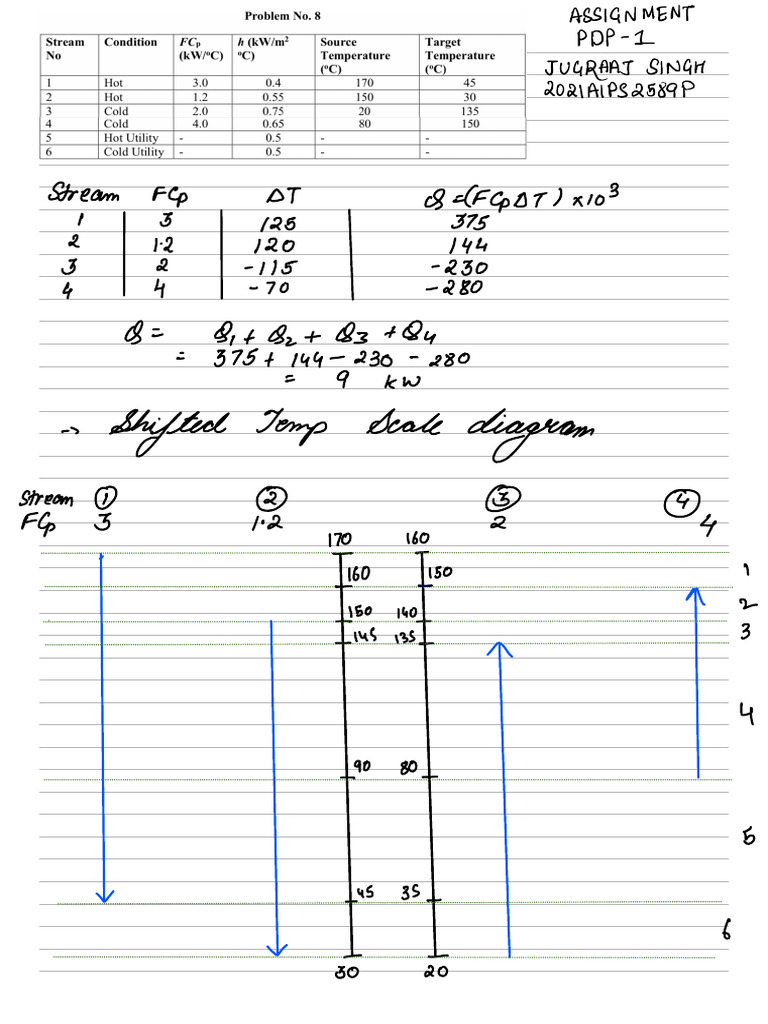 Problem No. 8
ASSIGNMENT
PDP-1
JUGRAAJ SINGH
2021A1PS2589P
Stream No Condition FCp (kW/°C) h (kW/m² °C) Source Temperature (°C) Target Temperature (°C)
1 Hot 3.0 0.4 170 45
2 Hot 1.2 0.55 150 30
3 Cold 2.0 0.75 20 135
4 Cold 4.0 0.65 80 150
5 Hot Utility - 0.5 - -
6 Cold Utility - 0.5 - -
Stream FCp ΔT Q = (FCpΔT) × 10³
1 3 125 375
2 1.2 120 144
3 2 -115 -230
4 4 -70 -280
Q = Q1 + Q2 + Q3 + Q4
= 375 + 144 - 230 - 280
= 9 kW
→ Shifted Temp Scale diagram
Stream 1 2 3 4
FCp 3 1.2 2 4
170 160
160 150 1
150 140 2
145 135 3
4
90 80
5
45 35
6
30 20